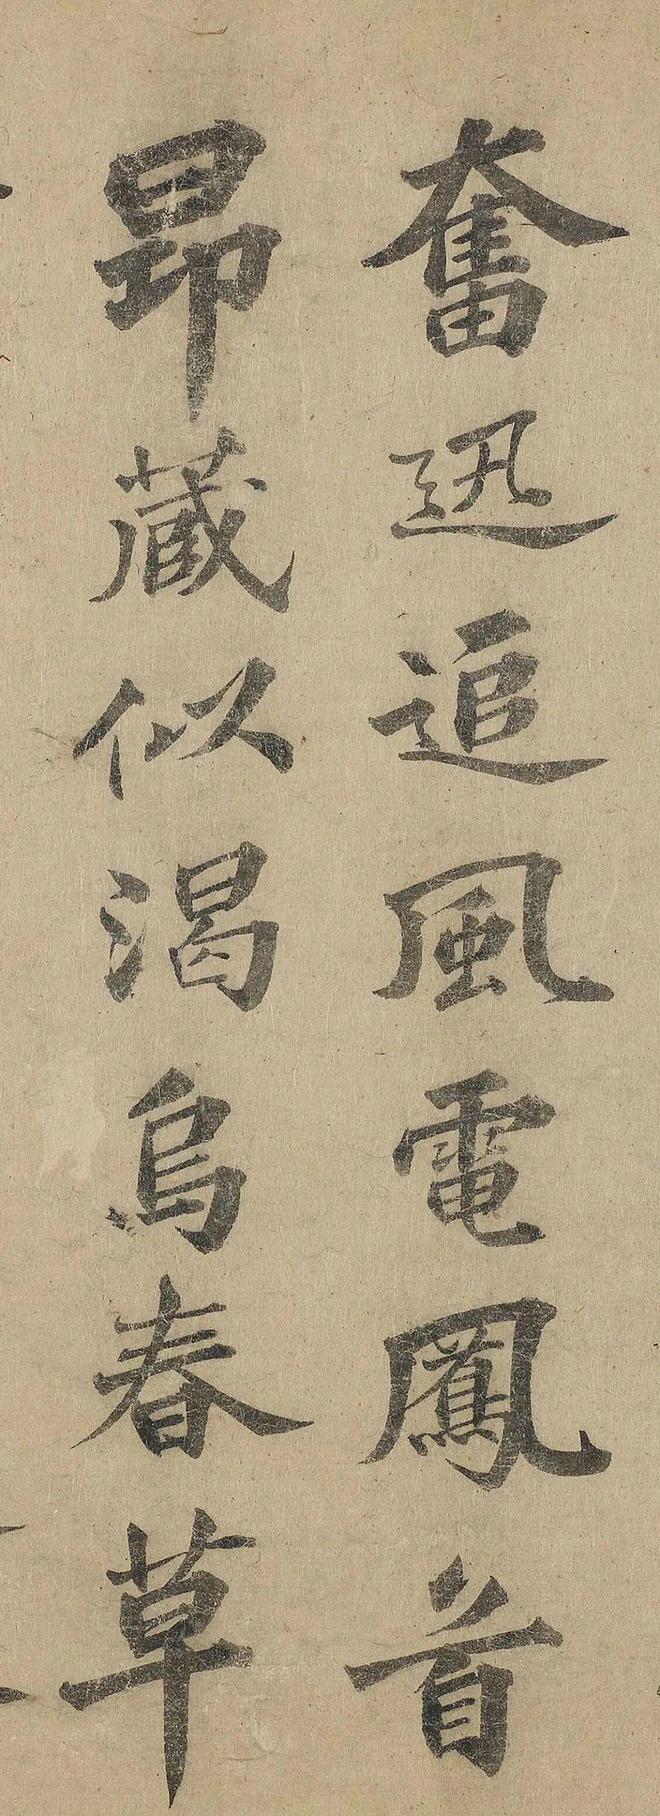 奮迅追風電鳳首
昂藏似渴烏春草